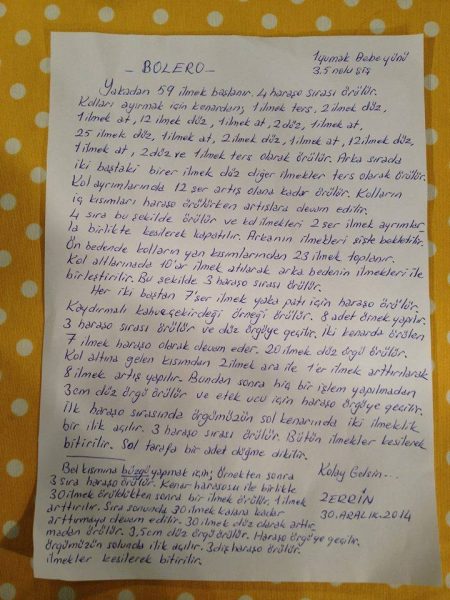 1 yumak Bebe yünü
3.5 nolu şiş
- BOLERO -
Yakadan 59 ilmek başlanır. 4 haraşo sırası örülür.
Kolları ayırmak için kenardan; 1 ilmek ters, 2 ilmek düz,
1 ilmek at, 12 ilmek düz, 1 ilmek at, 2 düz, 1 ilmek at,
25 ilmek düz, 1 ilmek at, 2 ilmek düz, 1 ilmek at, 12 ilmek düz,
1 ilmek at, 2 düz ve 1 ilmek ters olarak örülür. Arka sırada
iki baştaki birer ilmek düz diğer ilmekler ters olarak örülür.
Kol ayrımlarında 12 şer artış olana kadar örülür. Kolların
iç kısımları haraşo örülürken artışlara devam edilir.
4 sıra bu şekilde örülür ve kol ilmekleri 2 şer ilmek ayrımlar-
la birlikte kesilerek kapatılır. Arkanın ilmekleri şişte bekletilir.
Ön bedende kolların yan kısımlarından 23 ilmek toplanır.
Kol altlarınada 10'ar ilmek atılarak arka bedenin ilmekleri ile
birleştirilir. Bu şekilde 3 haraşo sırası örülür.
Her iki baştan 7'şer ilmek yaka patı için haraşo örülür.
Kaydırmalı kahveçekirdeği örneği örülür. 8 adet örnek yapılır.
3 haraşo sırası örülür ve düz örgüye geçilir. İki kenarda örülen
7 ilmek haraşo olarak devam eder. 20 ilmek düz örgü örülür.
Kol altına gelen kısımdan 2 ilmek ara ile 1'er ilmek arttırılarak
8 ilmek artış yapılır. Bundan sonra hiç bir işlem yapılmadan
3 cm düz örgü örülür ve etek ucu için haraşo örgüye geçilir.
İlk haraşo sırasında örgümüzün sol kenarında iki ilmeklik
bir ilik açılır. 3 haraşo sırası örülür. Bütün ilmekler kesilerek
bitirilir. Sol tarafa bir adet düğme dikilir.
Bel kısmına büzgü yapmak için; Örnekten sonra
3 sıra haraşo örülür. Kenar haraşosu ile birlikte
30 ilmek örüldükten sonra bir ilmek örülür, 1 ilmek
arttırılır. Sıra sonunda 30 ilmek kalana kadar
arttırmaya devam edilir. 30 ilmek düz olarak arttır
madan örülür. 3,5 cm düz örgü örülür. Haraşo örgüye geçilir.
Örgümüzün solunda ilik açılır. 3 diş haraşo örülür.
ilmekler kesilerek bitirilir.
Kolay Gelsin...
ZERRİN
30. ARALIK. 2014